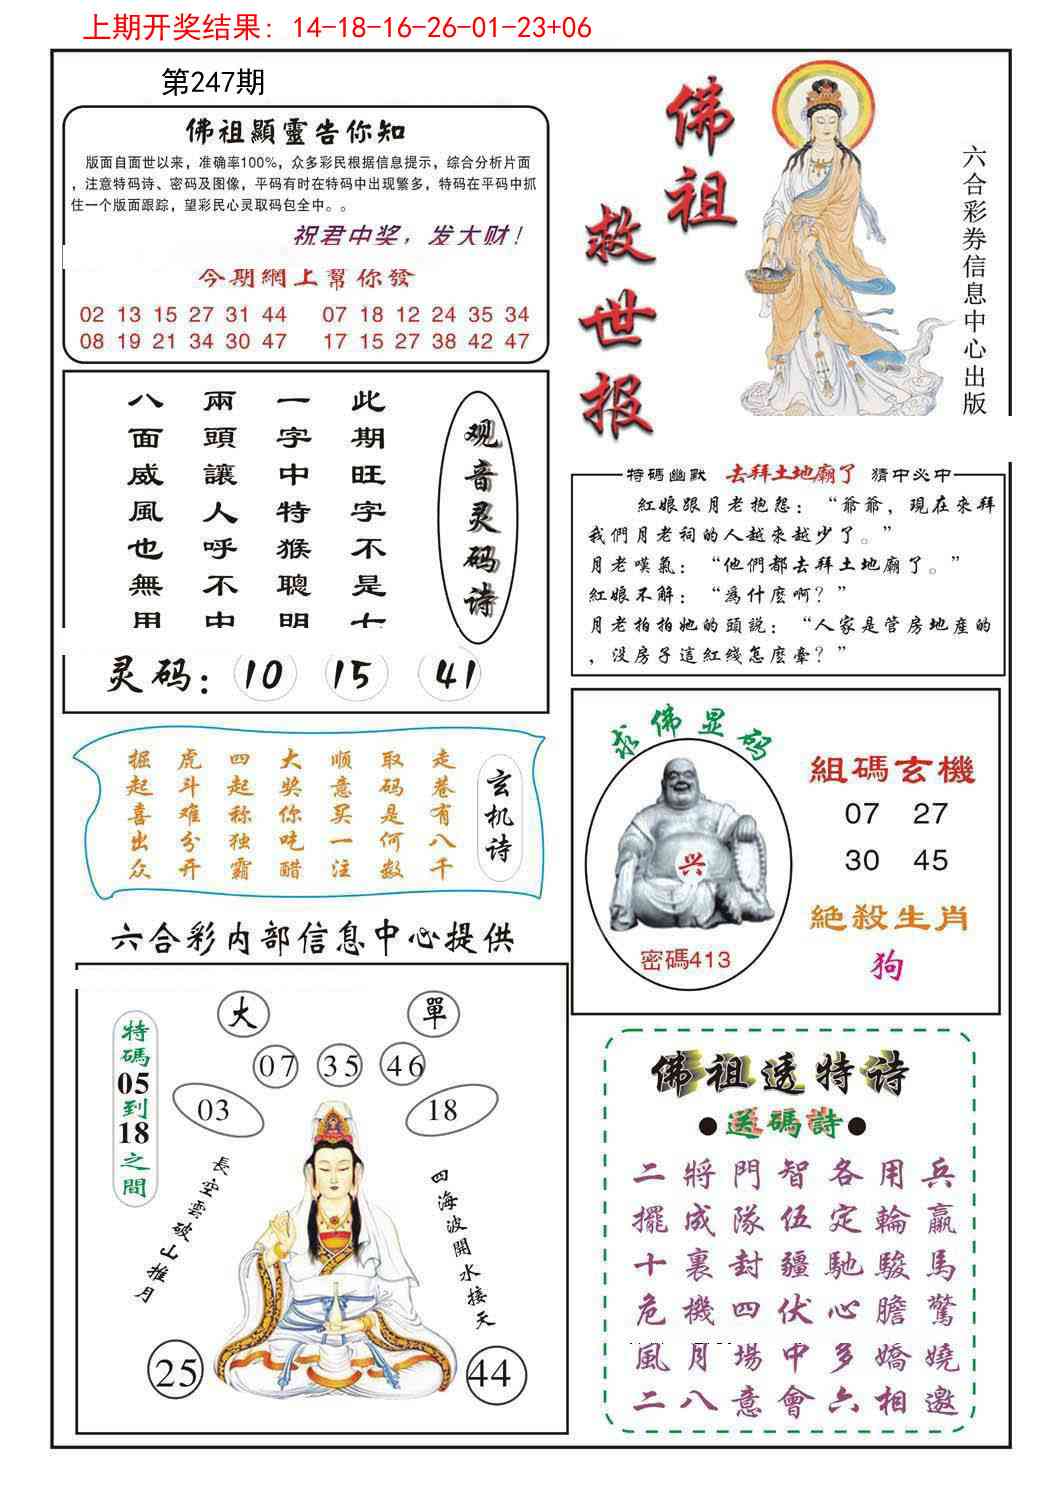 上期开奖结果: 14-18-16-26-01-23+06
第247期
佛祖顯靈告你知
版面自面世以来，准确率100%，众多彩民根据信息提示，综合分析片面
，注意特码诗、密码及图像，平码有时在特码中出现繁多，特码在平码中抓
住一个版面跟踪，望彩民心灵取码包全中。。
祝君中奖，发大财！
今期網上幫你發
02 13 15 27 31 44 07 18 12 24 35 34
08 19 21 34 30 47 17 15 27 38 42 47
佛祖
救世报
六合彩券信息中心出版
观音灵码诗
此期旺字不是七
一字中特猴聰明
兩頭讓人呼不中
八面威風也無用
灵码: 10 15 41
特碼幽默 去拜土地廟了 猜中必中
紅娘跟月老抱怨：“爺爺，現在來拜
我們月老祠的人越來越少了。”
月老嘆氣：“他們都去拜土地廟了。”
紅娘不解：“爲什麽啊？”
月老拍拍她的頭説：“人家是管房地産的
，没房子這紅綫怎麽牽？”
玄机诗
走巷有八千
取码是何数
顺意买一注
大奖你吃醋
四起称独霸
虎斗难分开
掘起喜出众
求佛显码
兴
密碼413
組碼玄機
07 27
30 45
絕殺生肖
狗
六合彩内部信息中心提供
特碼05到18之間
大 單
07 35 46
03 18
長空雲破山推月
四海波開水接天
25 44
佛祖透特诗
●送碼詩●
二將門智各用兵
擺成隊伍定輪贏
十裏封疆馳駿馬
危機四伏心膽驚
風月場中多嬌嬈
二八意會六相邀